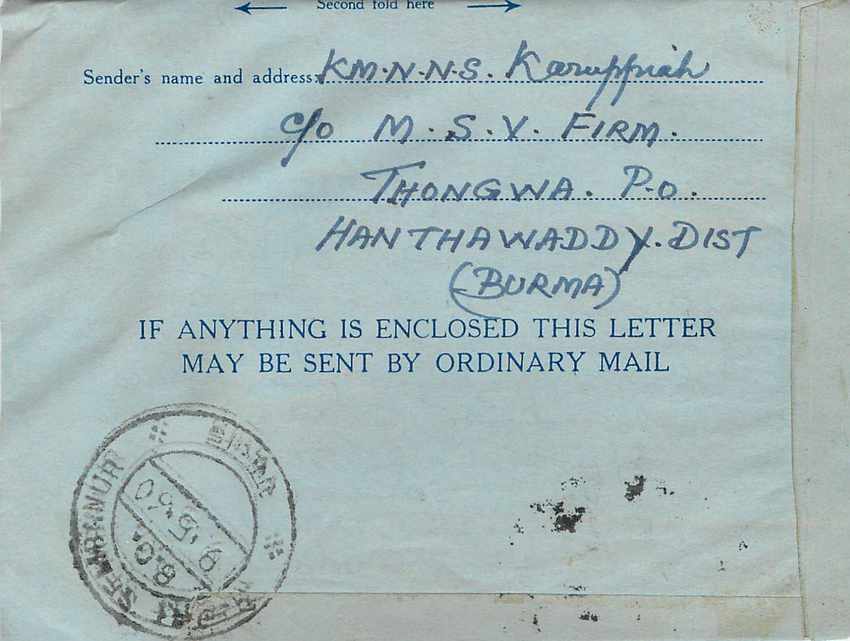 Second fold here
Sender's name and address: KM.N.N.S. Karuppiah
C/o M.S.V. FIRM.
THONGWA. P.O.
HANTHAWADDY. DIST
(BURMA)
IF ANYTHING IS ENCLOSED THIS LETTER
MAY BE SENT BY ORDINARY MAIL
SEMBANUR
B.O.